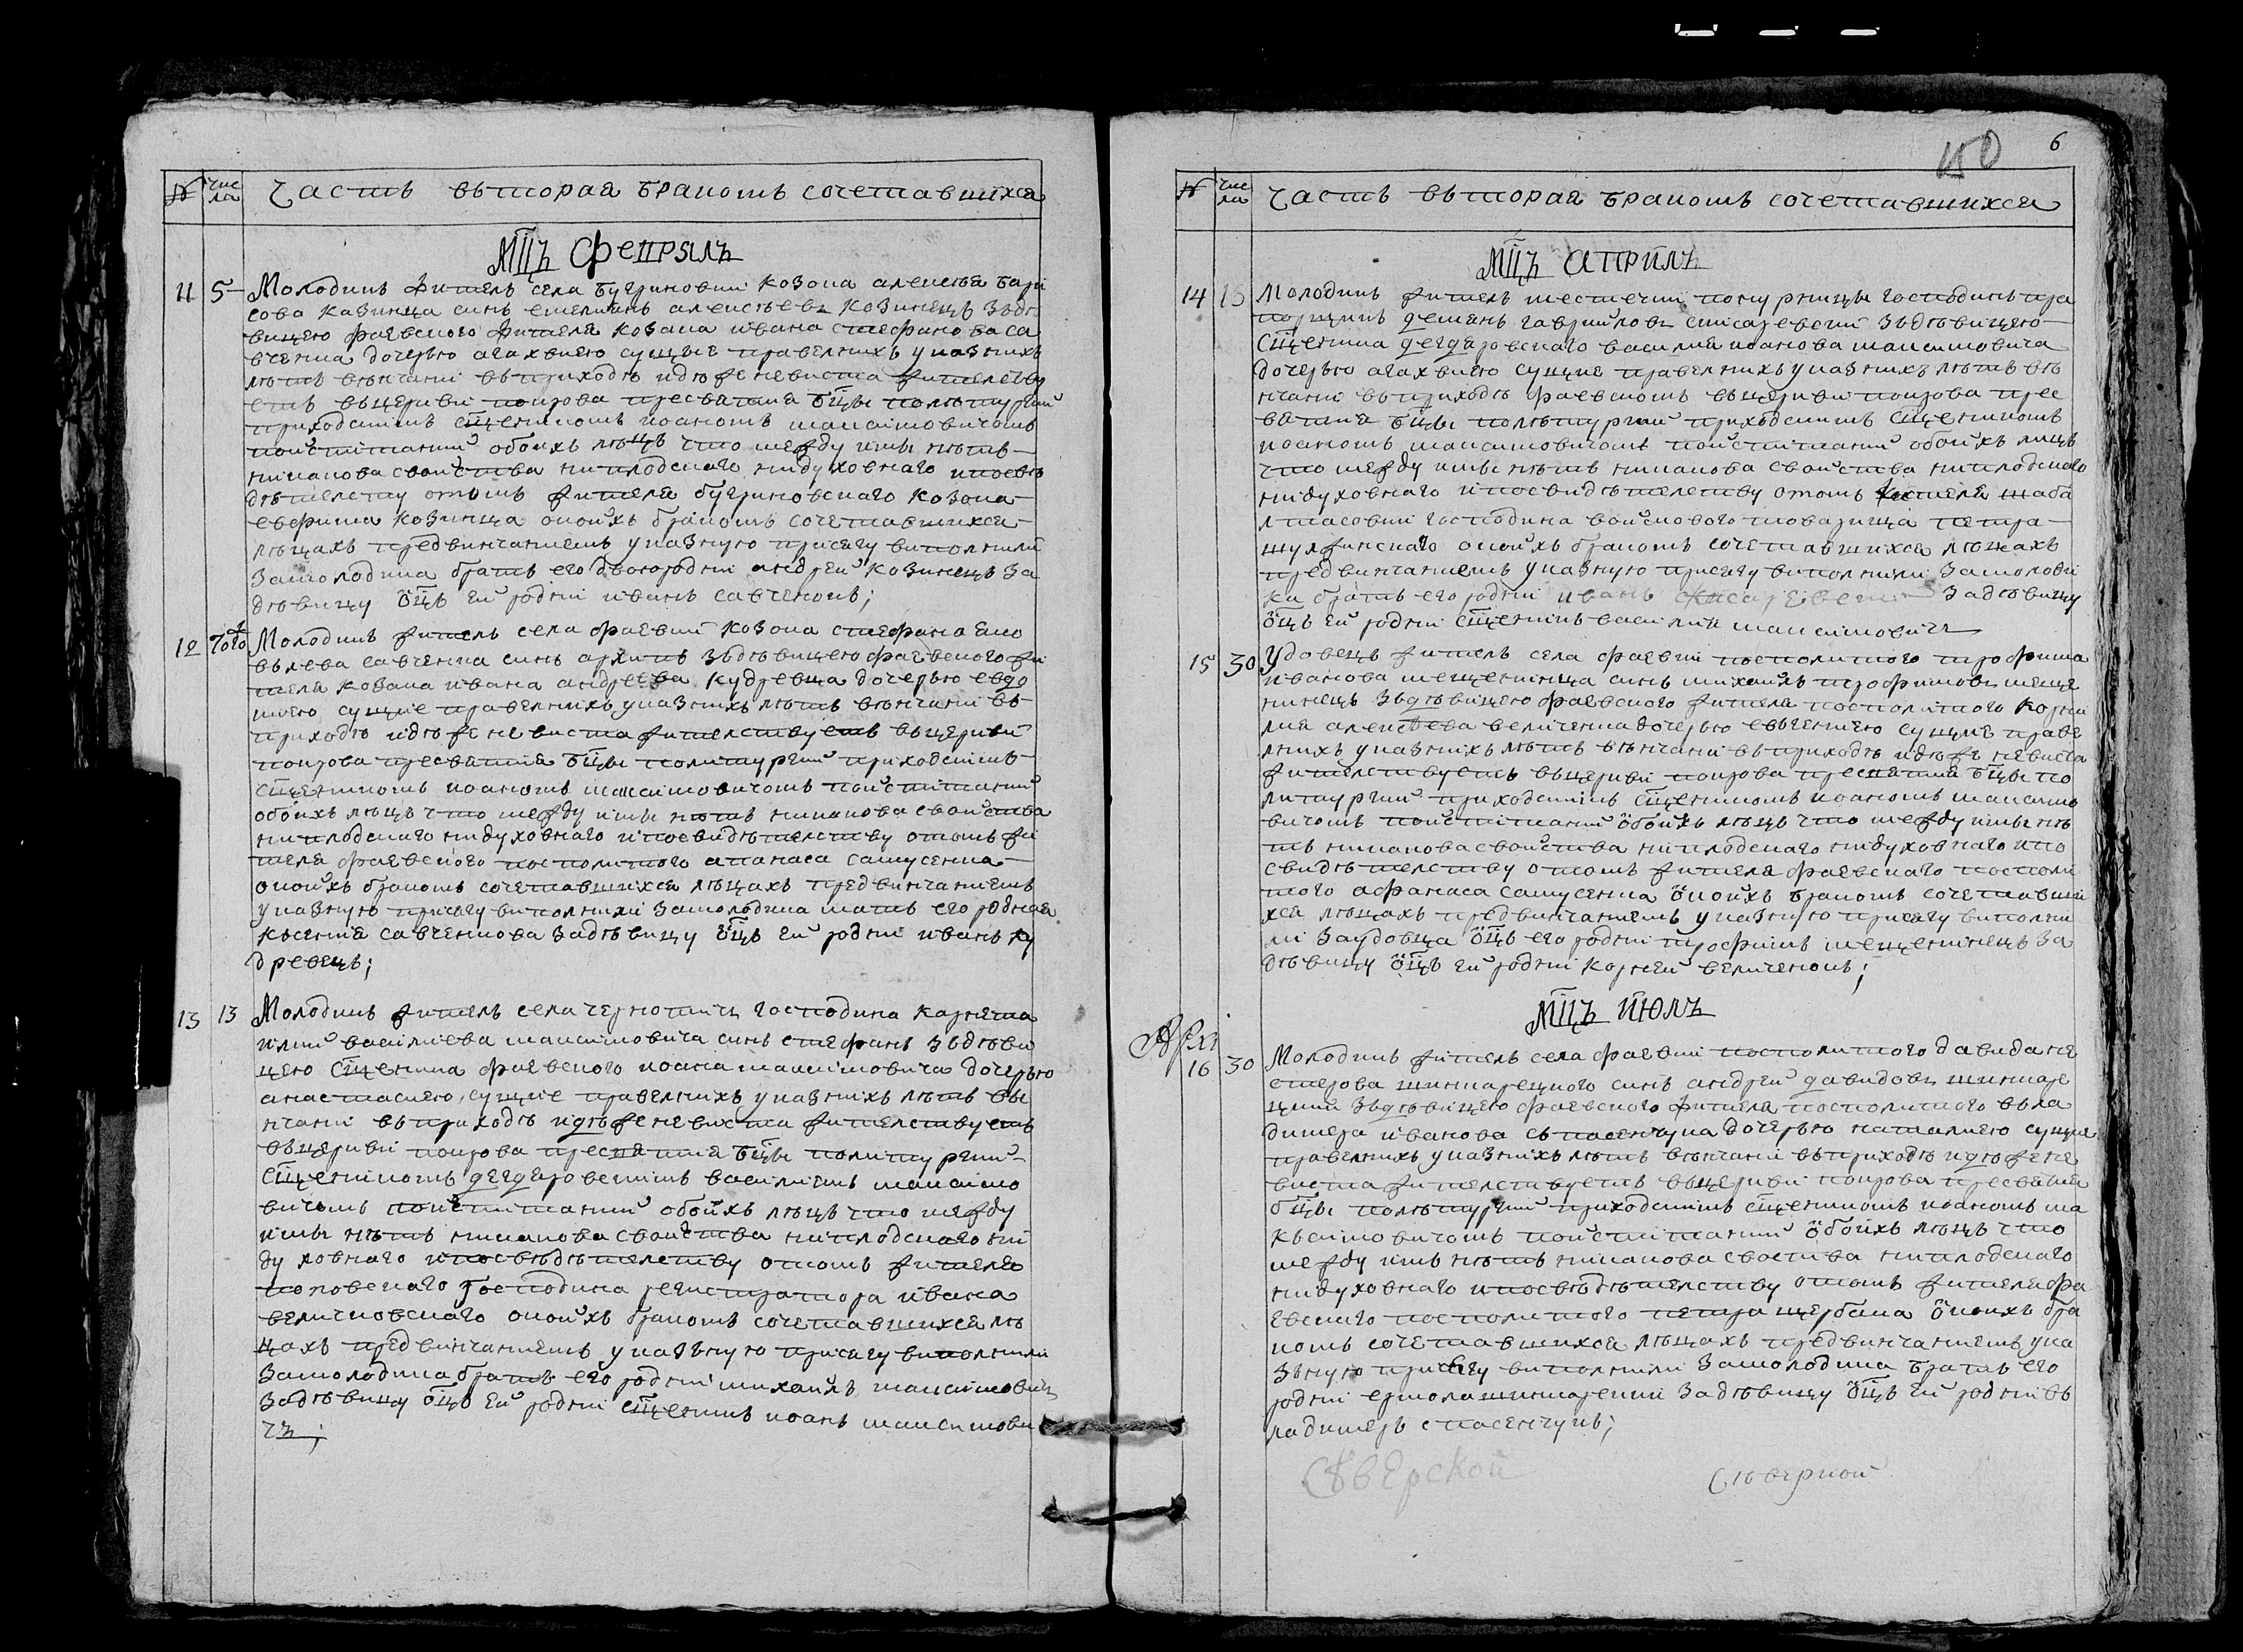 № Чис
ла
Часть вьторая бракомъ сочетавшихся
Мцъ Февралъ
11 5 Молодикъ житель села бугриновки козака алексѣя бари
сова казинца синъ емелиянъ алексѣевъ козинецъ зьдѣ
вицею фаевского жителя козака ивана стефанова са
вченка дочерью агафиею сущые правелнихъ указнихъ
лѣтъ вѣнчани въприходѣ идѣже невиста жителству
етъ въцеркви покрова пресвятия бцы полѣтургии
приходскимъ сщенникомъ иоаномъ максимовичомъ
поиспитании обоихъ лѣцъ что между ими нѣтъ
никакова свойства ниплодскаго нидуховнаго ипосвѣ
дѣтелству отомъ жителя бугриновского козака
ефима козинца окоихъ бракомъ сочетавшихся
лѣцахъ предвинчаниемъ указную присягу виполнили
замолодика братъ его двоюродни андрей козинецъ за
дѣвицу ѡцъ ей родни иванъ савченокъ;
12 того Молодикъ житель села фаевки козака стефана
савченка синъ архипъ зьдѣвицею фаевского жи
теля козака ивана андреева кудревца дочерью евдо
киею сущие правелнихъ указнихъ лѣтъ вѣнчани въ
приходѣ идѣже невиста жителствуетъ въцеркви
покрова пресвятия бцы политургии приходскимъ
сщенникомъ иоаномъ максимовичомъ поиспитании
обоихъ лѣцъ что между ими нѣтъ никакова свойства
ниплодскаго нидуховнаго ипосвидѣтелству отомъ жи
теля фаевского посполитого апанаса самусенка
окоихъ бракомъ сочетавшихся лѣцахъ предвинчаниемъ
указную присягу виполнили замолодика мать его родная
ксения савченкова задѣвицу ѡцъ ей родни иванъ ку
древецъ;
13 13 Молодикъ житель села чернотичъ господина
василиева максимовича синъ стефанъ зьдѣви
цею сщеника фаевского иоана максимовича дочерью
анастасиею, сущие правелнихъ указнихъ лѣтъ вѣ
нчани въприходѣ идѣже невиста жителствуетъ
въцеркви покрова пресвятия бцы политургии
сщеникомъ дегдяровскимъ василиемъ максимо
вичомъ поиспитании обоихъ лѣцъ что между
ими нѣтъ никакова свойства ниплодскаго ни
духовнаго ипосвѣдѣтелству отомъ жителя
поповского господина регистратора ивана
величковскаго окоихъ бракомъ сочетавшихся лѣ
цахъ предвинчаниемъ указьную присягу виполнили
замолодика братъ его родни михаилъ максимовичъ
задѣвицу ѡцъ ей родни сщеникъ иоанъ максимови
чъ;
6
№ Чис
ла
Часть вьторая бракомъ сочетавшихся
Мцъ априлъ
14 Молодикъ житель местечки господинъ пра
порщикъ демянъ гавриловъ снисаревский зьдѣвицею
сщеника дегдяровского василия иоанова максимовича
дочерью агафиею сущие правелнихъ указнихъ лѣтъ вѣ
нчани въприходѣ фаевскомъ въцеркви покрова прес
вятия бцы полѣтургии приходскимъ сщенникомъ
иоаномъ максимовичомъ поиспитании обоихъ лицъ
что между ими нѣтъ никакова свойства ниплодскаго
нидуховнаго ипосвидѣтелству отомъ жителя шаба
лтасовки господина войскового товарища петра
шулжинскаго окоихъ бракомъ сочетавшихся лѣцахъ
предвинчаниемъ указную присягу виполнили замолоди
ка братъ его родни иванъ задѣвицу
ѡцъ ей родни сщеникъ василий максимовичъ
15 30 Удовецъ житель села фаевки посполитого трофима
иванова мещенинца синъ михаилъ трофимовъ меще
нинецъ зьдѣвицею фаевского жителя посполитого корни
лия алексѣева величенка дочерью евьгениею сущие праве
лнихъ указнихъ лѣтъ вѣнчани въприходѣ идѣже невиста
жителствуетъ въцеркви покрова пресвятия бцы по
литургии приходскимъ сщенникомъ иоаномъ максимо
вичомъ поиспитании обоихъ лѣцъ что между ими нѣ
тъ никакова свойства ниплодскаго нидуховнаго ипо
свидѣтелству отомъ жителя фаевского посполи
того афанаса самусенка окоихъ бракомъ сочетавши
хся лѣцахъ предвинчаниемъ указную присягу виполни
ли заудовца ѡцъ его родни трофимъ мещенинецъ за
дѣвицу ѡцъ ей родни корней величенокъ;
Мцъ июлъ
16 30 Молодикъ житель села фаевки посполитого давида не
стерова шинкарецкого синъ андрей давидовъ шинкаре
цкий зьдѣвицею фаевского жителя посполитого вьла
димера иванова съпасенчука дочерью наталиею сущие
правелнихъ указнихъ лѣтъ вѣнчани въприходѣ идѣже не
виста жителствуетъ въцеркви покрова пресвятия
бцы полѣтургии приходскимъ сщенникомъ иоаномъ ма
ксимовичомъ поиспитании обоихъ лѣцъ что
между ими нѣтъ никакова своства ниплодскаго
нидуховнаго ипосвѣдѣтелству отомъ жителя фа
евского посполитого петра щербака окоихъ бра
комъ сочетавшихся лѣцахъ предвинчаниемъ ука
зьную присягу виполнили замолодика братъ его
родни ермола шинкарецкий задѣвицу ѡцъ ей родни въ
ладимеръ спасенчукъ;
Сѣверской